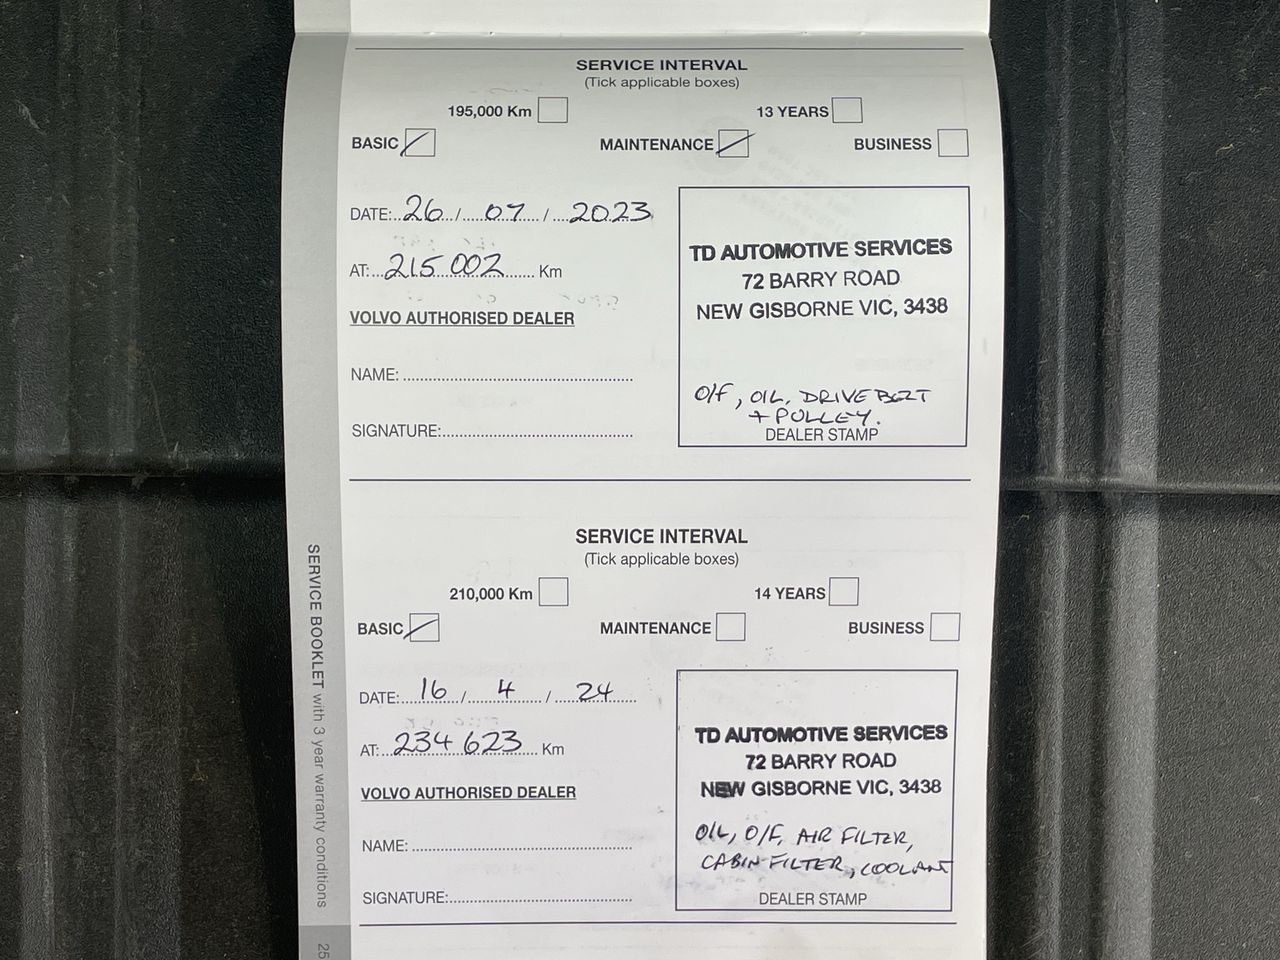 SERVICE INTERVAL
(Tick applicable boxes)
195,000 Km 13 YEARS
BASIC MAINTENANCE BUSINESS
DATE: 26 / 07 / 2023
AT: 215 002 Km
VOLVO AUTHORISED DEALER
NAME:
SIGNATURE:
TD AUTOMOTIVE SERVICES
72 BARRY ROAD
NEW GISBORNE VIC, 3438
O/F, OIL, DRIVE BELT
+ PULLEY.
DEALER STAMP
SERVICE INTERVAL
(Tick applicable boxes)
210,000 Km 14 YEARS
BASIC MAINTENANCE BUSINESS
DATE: 16 / 4 / 24
AT: 234 623 Km
VOLVO AUTHORISED DEALER
NAME:
SIGNATURE:
TD AUTOMOTIVE SERVICES
72 BARRY ROAD
NEW GISBORNE VIC, 3438
OIL, O/F, AIR FILTER,
CABIN FILTER, COOLANT
DEALER STAMP
SERVICE BOOKLET with 3 year warranty conditions
25